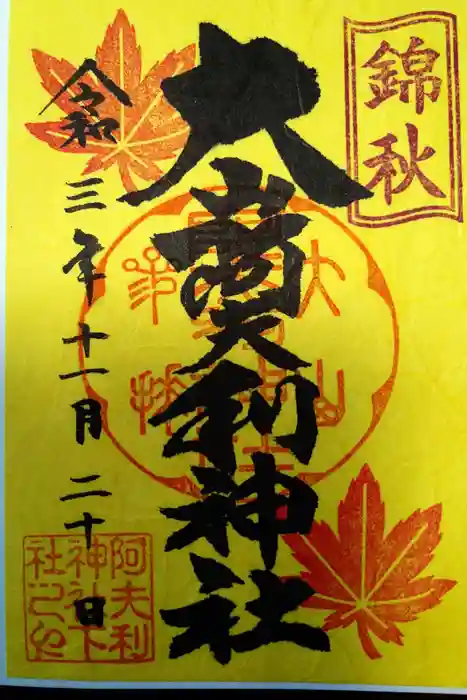 錦秋
大山阿夫利神社
令和三年十一月二十日
阿夫利
神社下
社之印